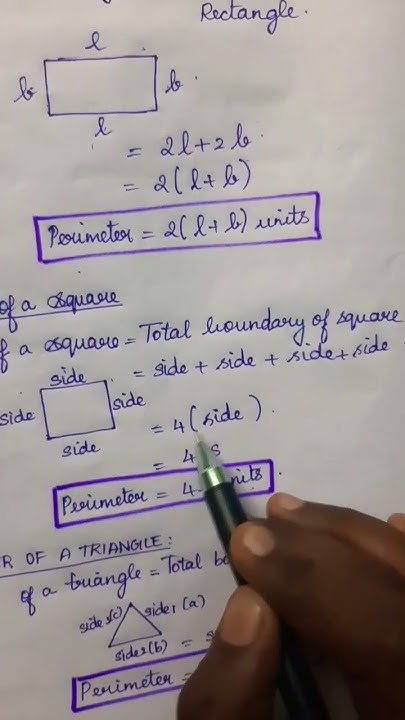 Rectangle.
l
b b.
l
= 2l+2b.
= 2(l+b)
Perimeter = 2(l+b) units
of a square
of a square = Total boundary of square
side = side + side + side + side
side side
= 4(side).
side
= 4 s
Perimeter = 4 units.
OF A TRIANGLE:
of a triangle = Total
side3(c) side1(a)
side2(b) =
Perimeter =